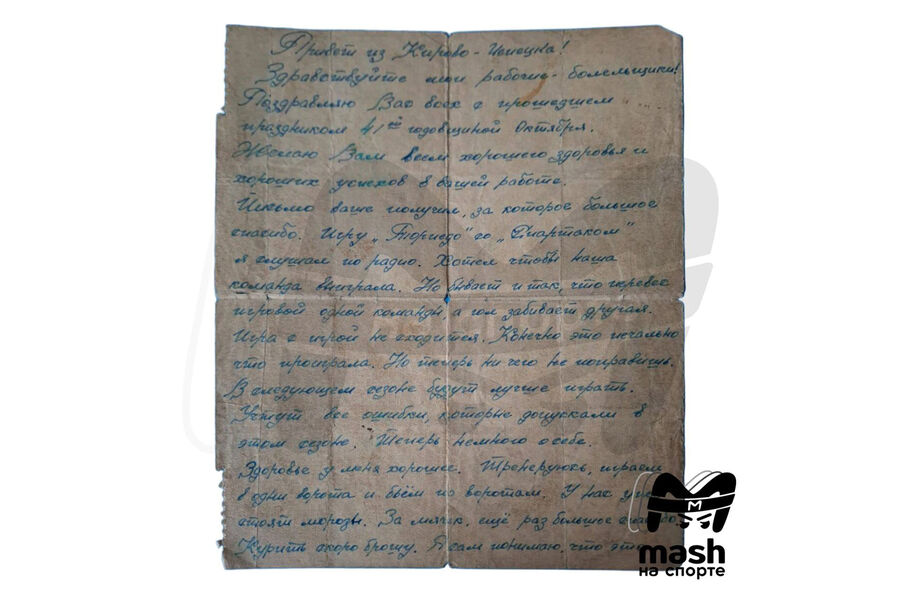 Привет из Кирово-Чепецка!
Здравствуйте мои рабочие-болельщики!
Поздравляю Вас всех с прошедшем
праздником 41ой годовщиной Октября.
Желаю Вам всем хорошего здоровья и
хороших успехов в вашей работе.
Письмо ваше получил, за которое большое
спасибо. Игру „Торпедо" со „Спартаком"
я слушал по радио. Хотел чтобы наша
команда выиграла. Но бывает и так, что перевес
игровой одной команды а гол забивает другая.
Игра с игрой не сходится. Конечно это печально
что проиграла. Но теперь ни чего не поправишь.
В следующем сезоне будут лучше играть.
Учтут все ошибки, которые допускали в
этом сезоне. Теперь немного о себе.
Здоровье у меня хорошее. Тренеруюсь, играем
в одни ворота и бьём по воротам. У нас
стоят морозы. За мячик, ещё раз большое
Курить скоро брошу. Я сам понимаю, что это
M
mash
на спорте